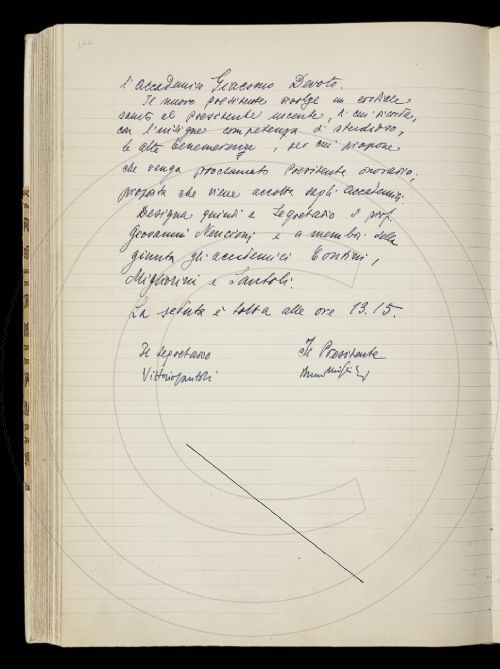 264
l'accademico Giacomo Devoto.
Il nuovo presidente rivolge un cordiale
saluto al Presidente uscente, di cui ricorda,
con l'insigne competenza di studioso,
le alte benemerenze, per cui propone
che venga proclamato Presidente onorario;
proposta che viene accolta dagli accademici.
Designa quindi a Segretario il prof.
Giovanni Nencioni e a membri della
giunta gli accademici Contini,
Migliorini e Santoli.
La seduta è tolta alle ore 13.15.
Il Segretario Il Presidente
Vittorio Santoli Bruno Migliorini